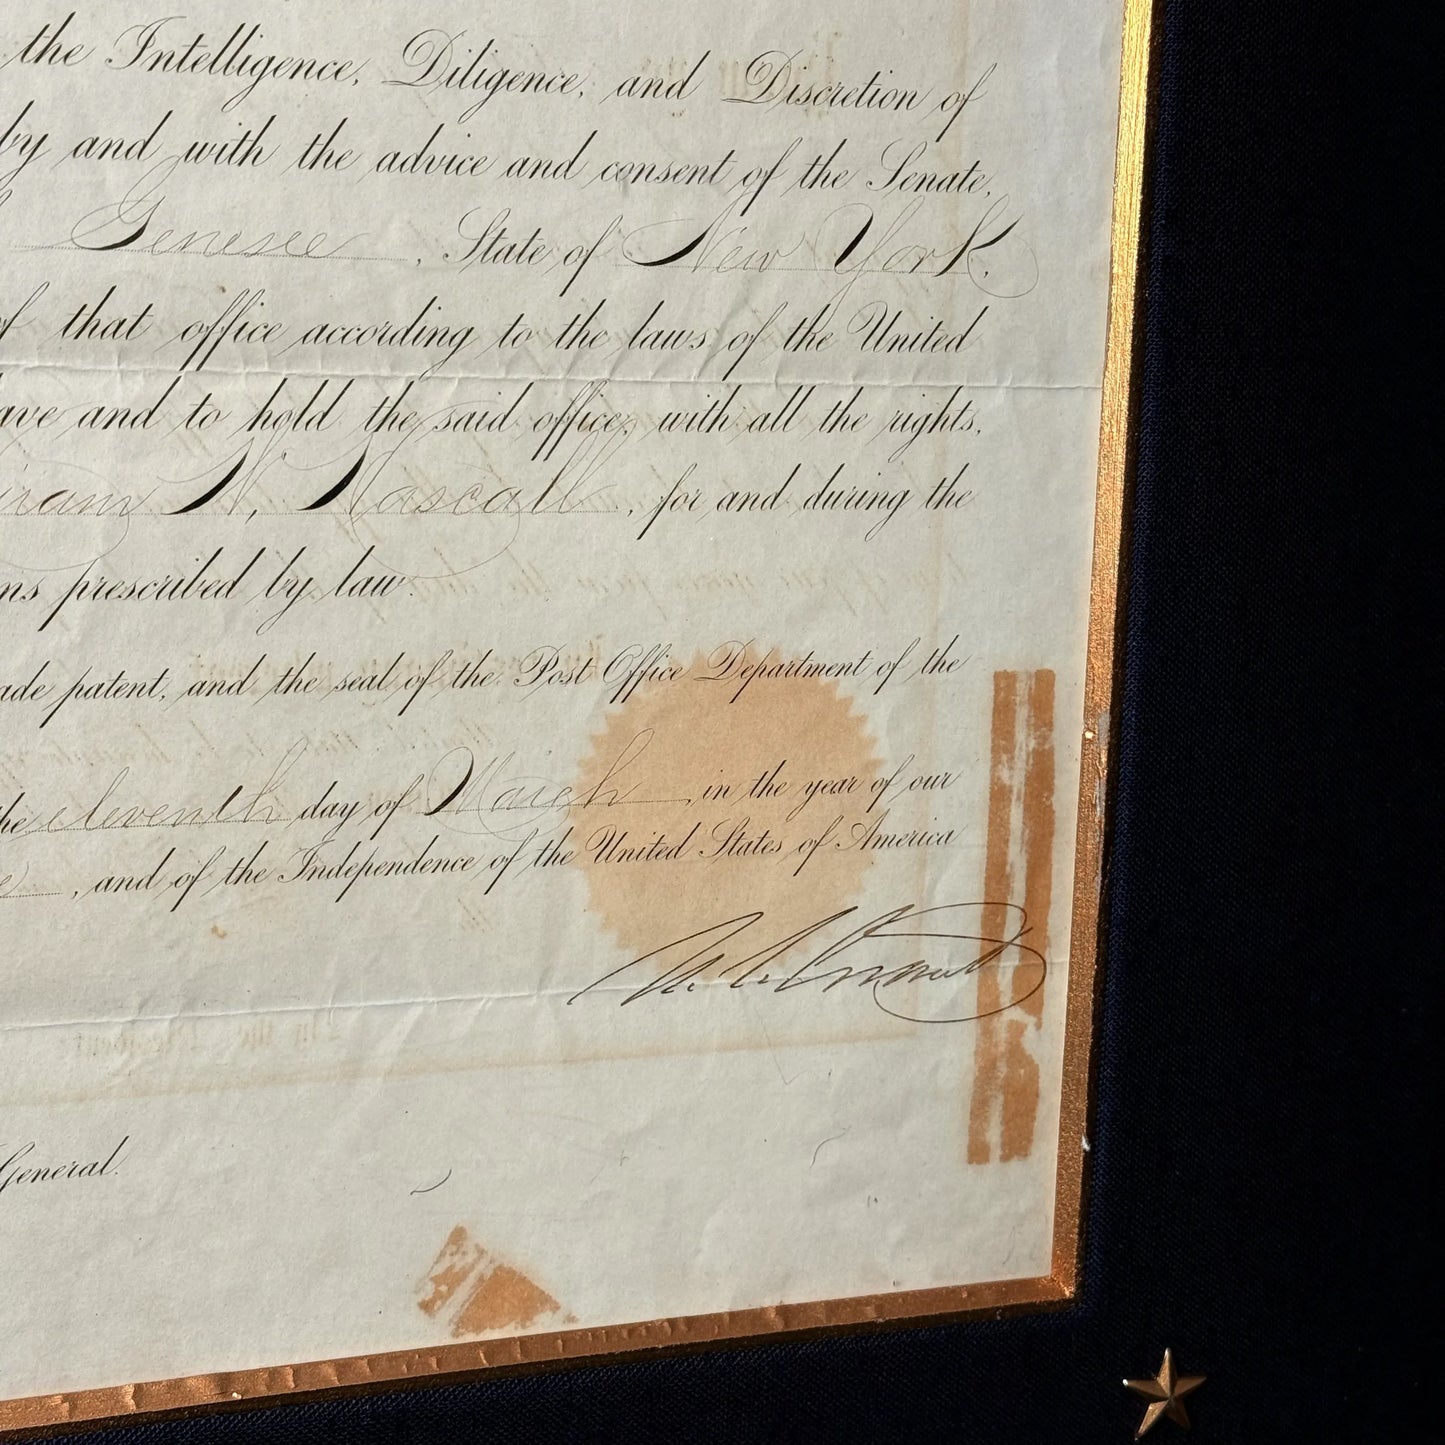 the Intelligence, Diligence, and Discretion of
by and with the advice and consent of the Senate,
Genesee, State of New York,
of that office according to the laws of the United
ave and to hold the said office, with all the rights,
iram N. Nascall, for and during the
ns prescribed by law.
ade patent, and the seal of the Post Office Department of the
he eleventh day of March in the year of our
e, and of the Independence of the United States of America
U. S. Grant
General.